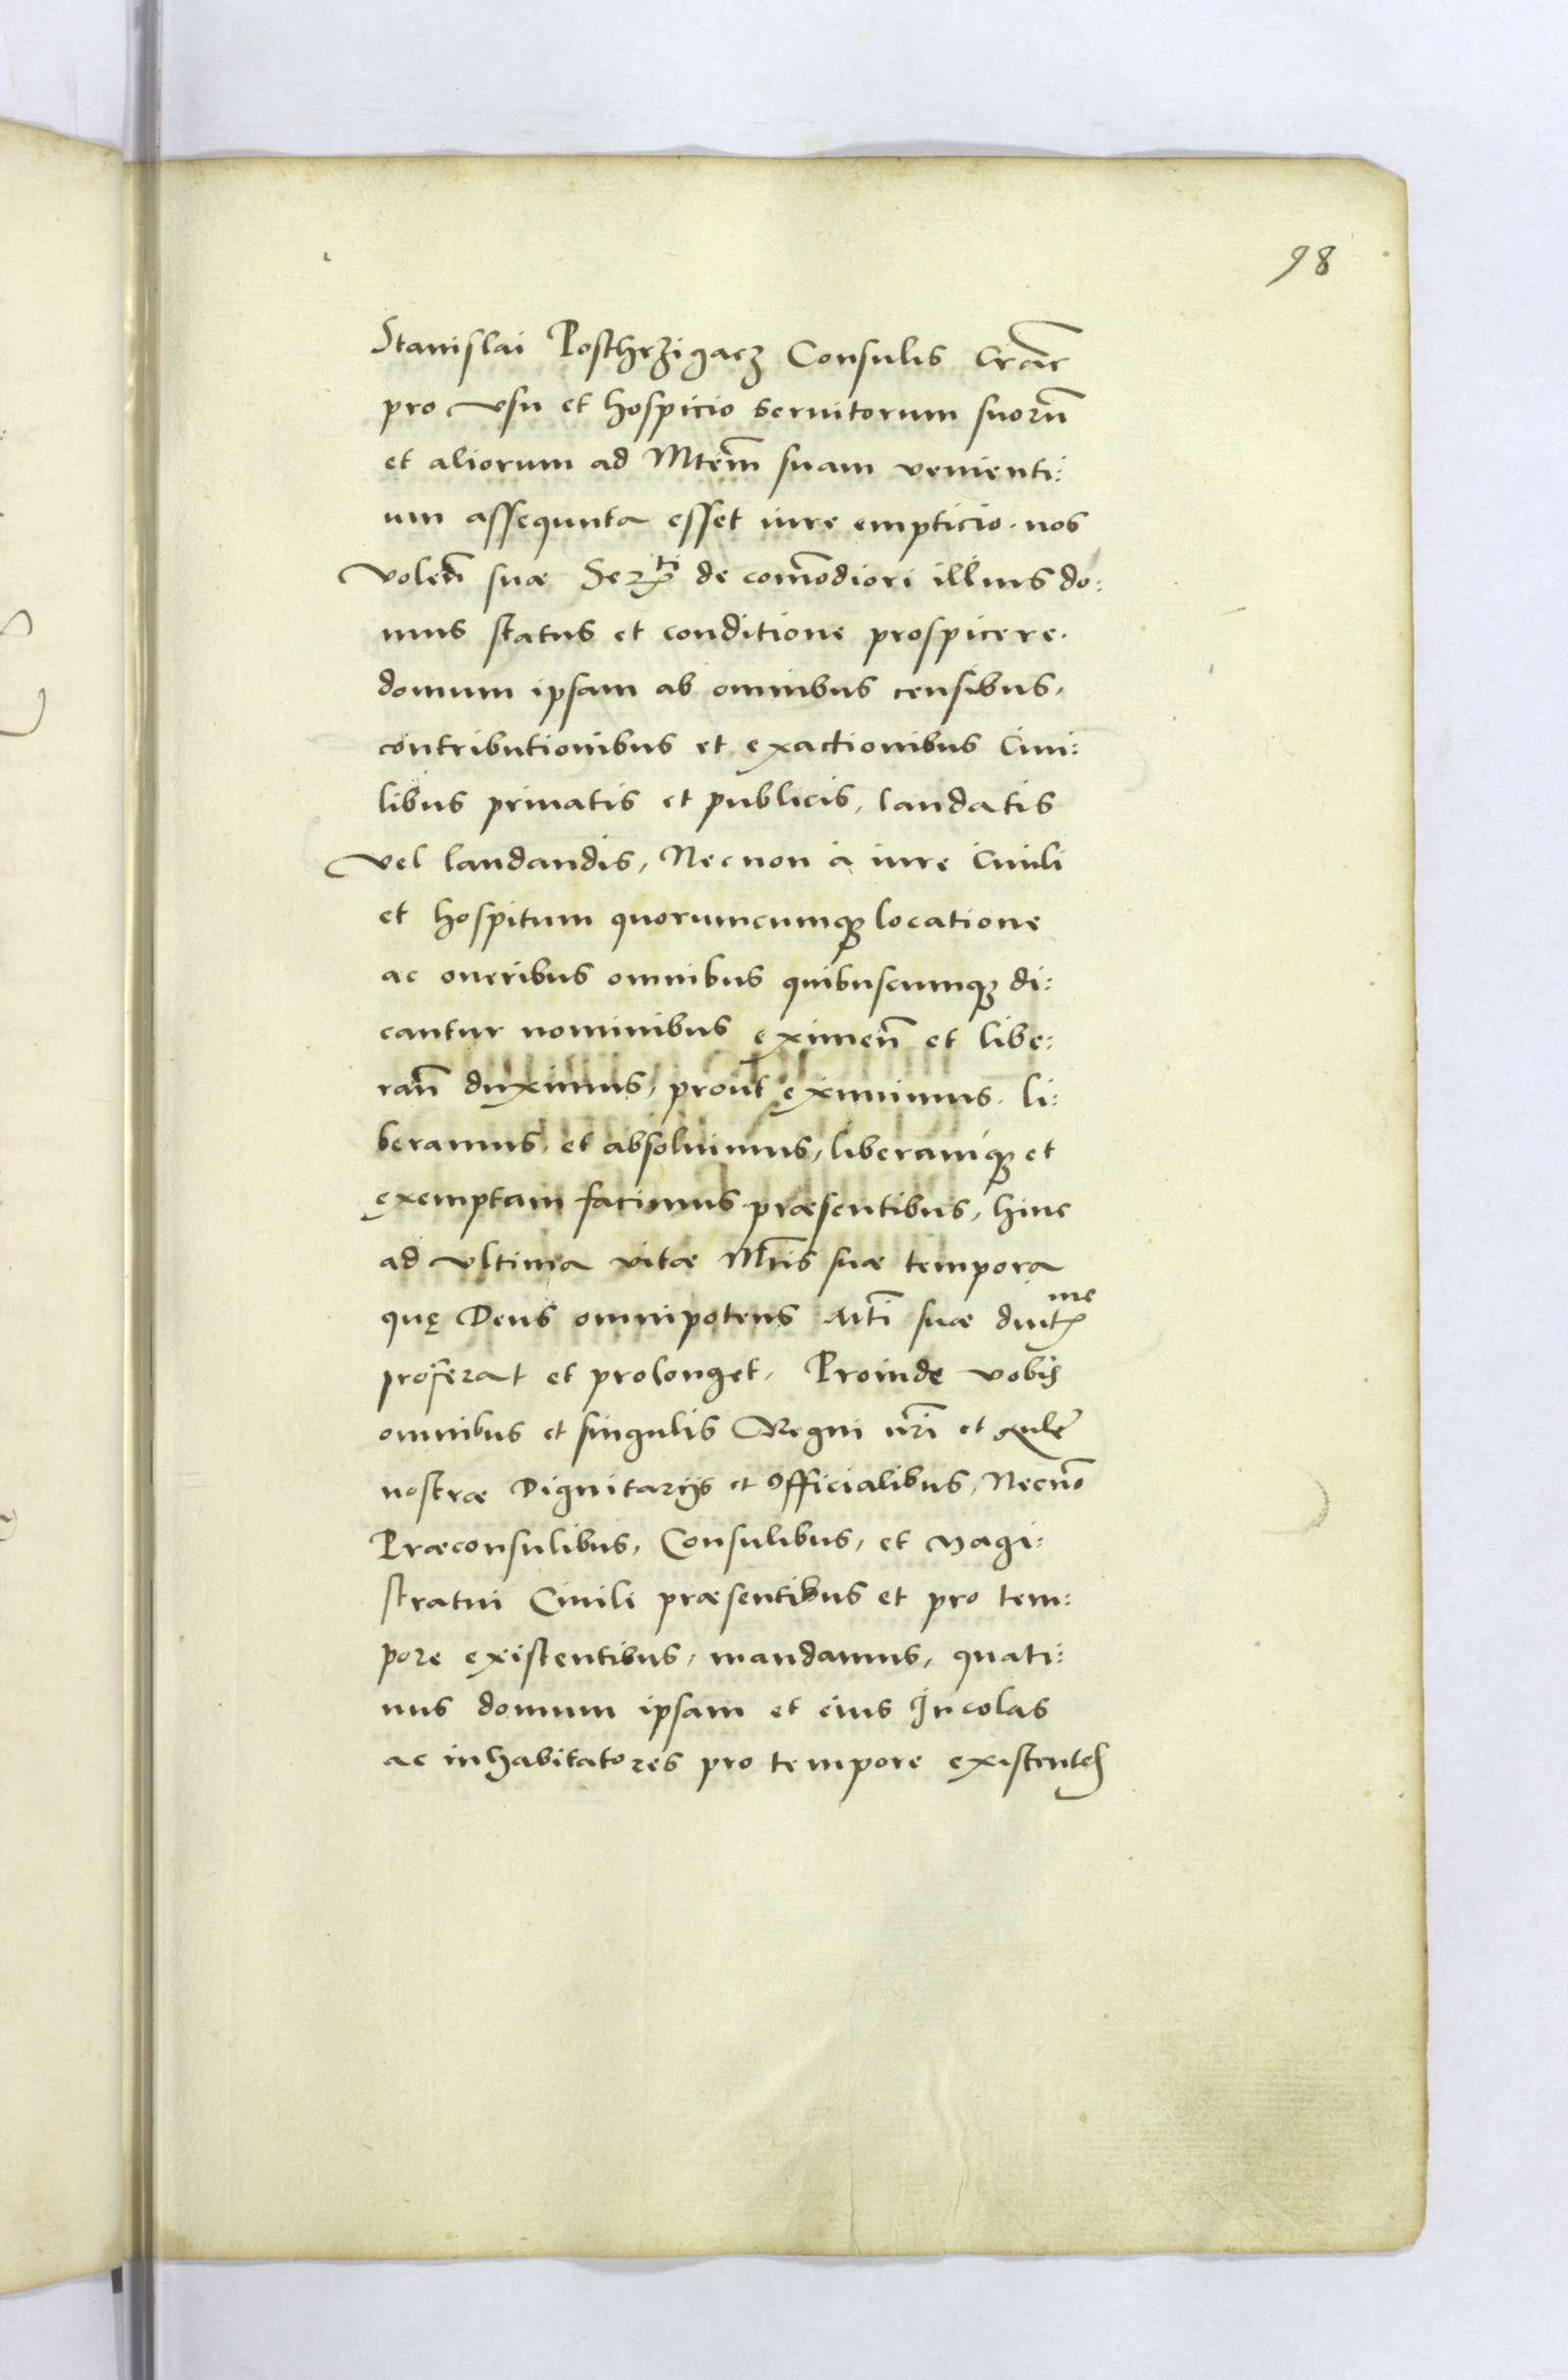 98
Stanislai Poschrzigacz Consulis Crac̃
pro vsu et hospicio seruitorum suorũ
et aliorum ad Mtem̃ suam venienti:
um assequuta esset iure empticio. nos
volen̄ suæ Serti de com̃odiori illius do:
mus status et conditione prospicere.
domum ipsam ab omnibus censibus,
contributionibus et exactionibus Ciui:
libus priuatis et publicis, laudatis
vel laudandis, Necnon à iure Ciuili
et hospitum quorumcumq̃ locatione
ac oneribus omnibus quibuscumq̃ di:
cantur nominibus eximen̄ et libe:
ran̄ duximus, prout eximimus. li:
beramus, et absoluimus, liberamq̃ et
exemptam facimus præsentibus, hinc
ad vltima vitæ Mtĩs suæ tempora
quę Deus omnipotens Mtĩ suæ diutme
proferat et prolonget. Proinde vobis
omnibus et singulis Regni nr̃i et Aulę
nostræ Dignitarijs et Officialibus, Necnõ
Præconsulibus, Consulibus, et Magi:
stratui Ciuili præsentibus et pro tem:
pore existentibus, mandamus, quati:
nus domum ipsam et eius Incolas
ac inhabitatores pro tempore existentes